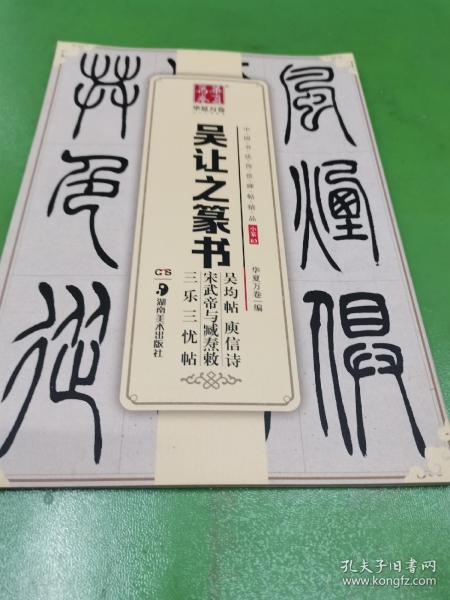 風煙俱
共色從
华夏万卷
华夏万卷
中国书法传世碑帖精品 小篆03
华夏万卷 编
吴让之篆书
吴均帖 庾信诗
宋武帝与臧焘敕
三乐三忧帖
湖南美术出版社
孔夫子旧书网
www.kongfz.com